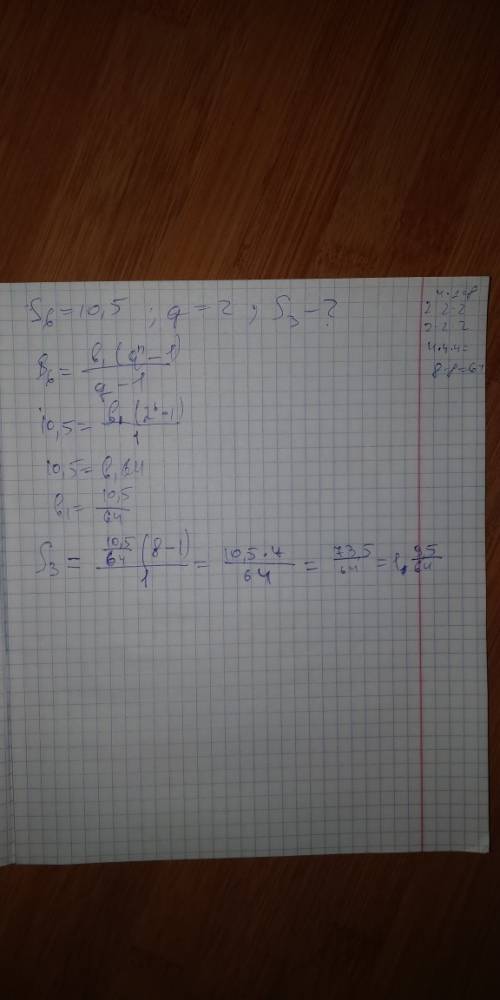 S₆ = 10,5 ; q = 2 ; S₃ - ?
S₆ = b₁(qⁿ - 1) / q - 1
10,5 = b₁(2⁶ - 1) / 1
10,5 = b₁64
b₁ = 10,5 / 64
S₃ = 10,5/64 (8 - 1) / 1 = 10,5 · 7 / 64 = 73,5 / 64 = 1, 9,5 / 64
2 · 2 · 2
2 · 2 · 2
4·4·4=
8·8=64